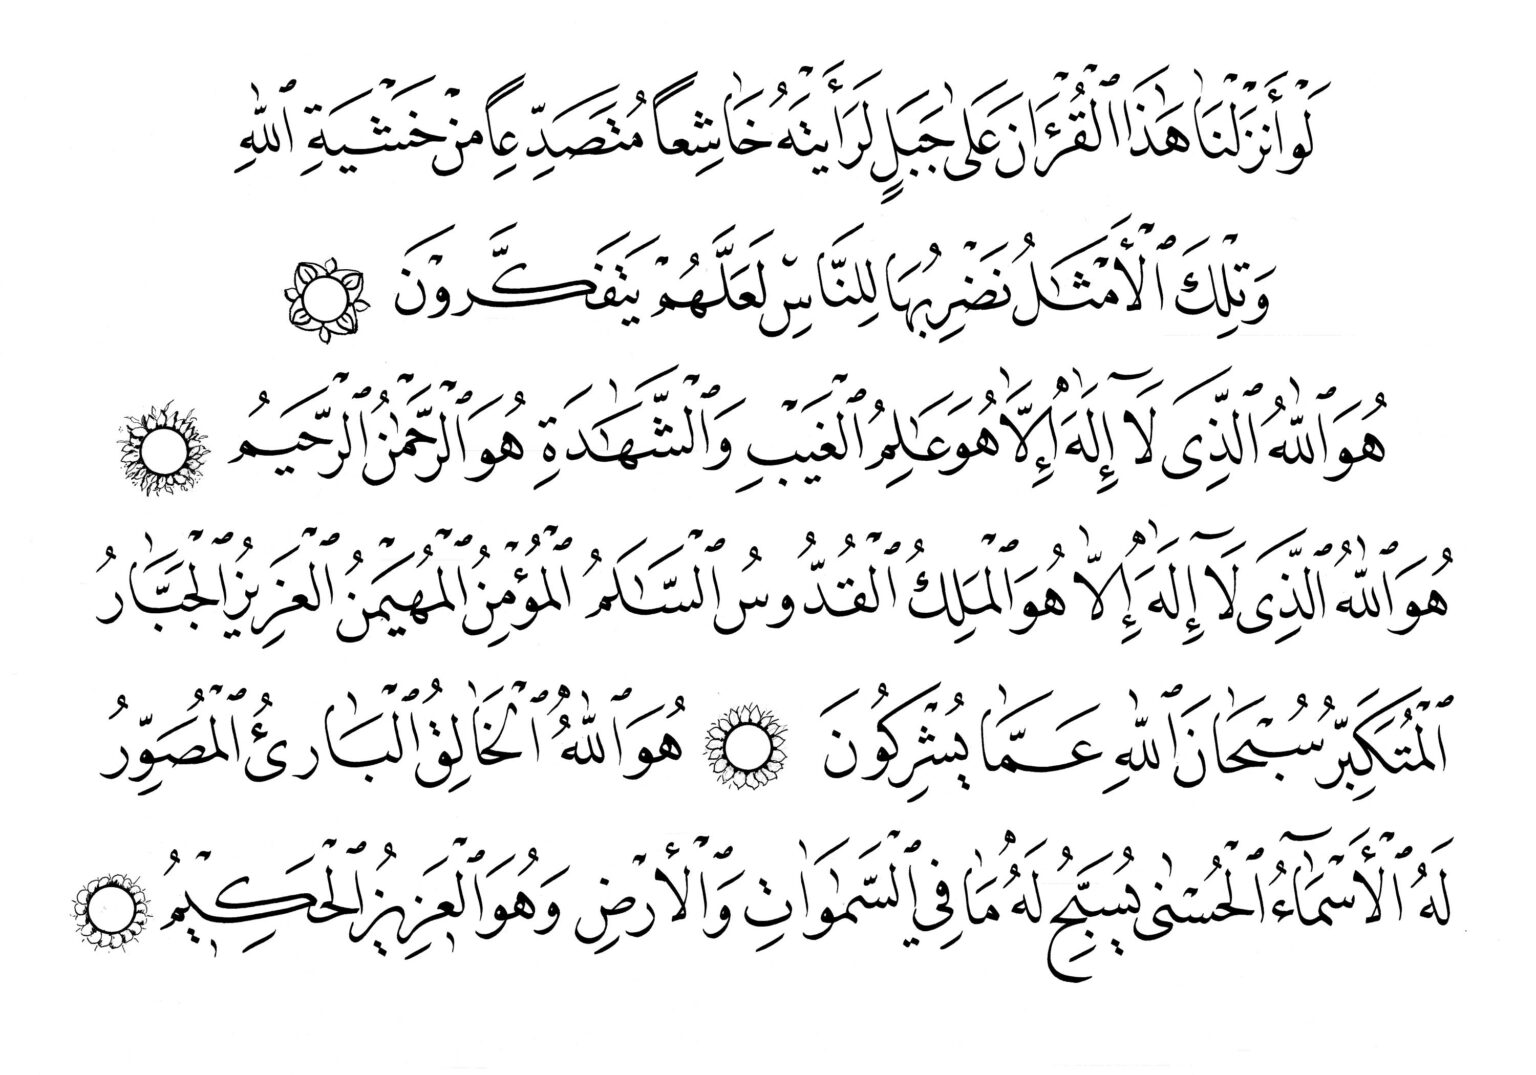 لَوْ أَنزَلْنَا هَٰذَا ٱلْقُرْءَانَ عَلَىٰ جَبَلٍ لَرَأَيْتَهُ خَاشِعاً مُتَصَدِّعاً مِنْ خَشْيَةِ ٱللَّهِ
وَتِلْكَ ٱلْأَمْثَالُ نَضْرِبُهَا لِلنَّاسِ لَعَلَّهُمْ يَتَفَكَّرُونَ
هُوَ ٱللَّهُ ٱلَّذِى لَآ إِلَٰهَ إِلَّا هُوَ عَالِمُ ٱلْغَيْبِ وَٱلشَّهَادَةِ هُوَ ٱلرَّحْمَٰنُ ٱلرَّحِيمُ
هُوَ ٱللَّهُ ٱلَّذِى لَآ إِلَٰهَ إِلَّا هُوَ ٱلْمَلِكُ ٱلْقُدُّوسُ ٱلسَّلَامُ ٱلْمُؤْمِنُ ٱلْمُهَيْمِنُ ٱلْعَزِيزُ ٱلْجَبَّارُ
ٱلْمُتَكَبِّرُ سُبْحَانَ ٱللَّهِ عَمَّا يُشْرِكُونَ هُوَ ٱللَّهُ ٱلْخَالِقُ ٱلْبَارِئُ ٱلْمُصَوِّرُ
لَهُ ٱلْأَسْمَآءُ ٱلْحُسْنَىٰ يُسَبِّحُ لَهُ مَا فِي ٱلسَّمَٰوَاتِ وَٱلْأَرْضِ وَهُوَ ٱلْعَزِيزُ ٱلْحَكِيمُ